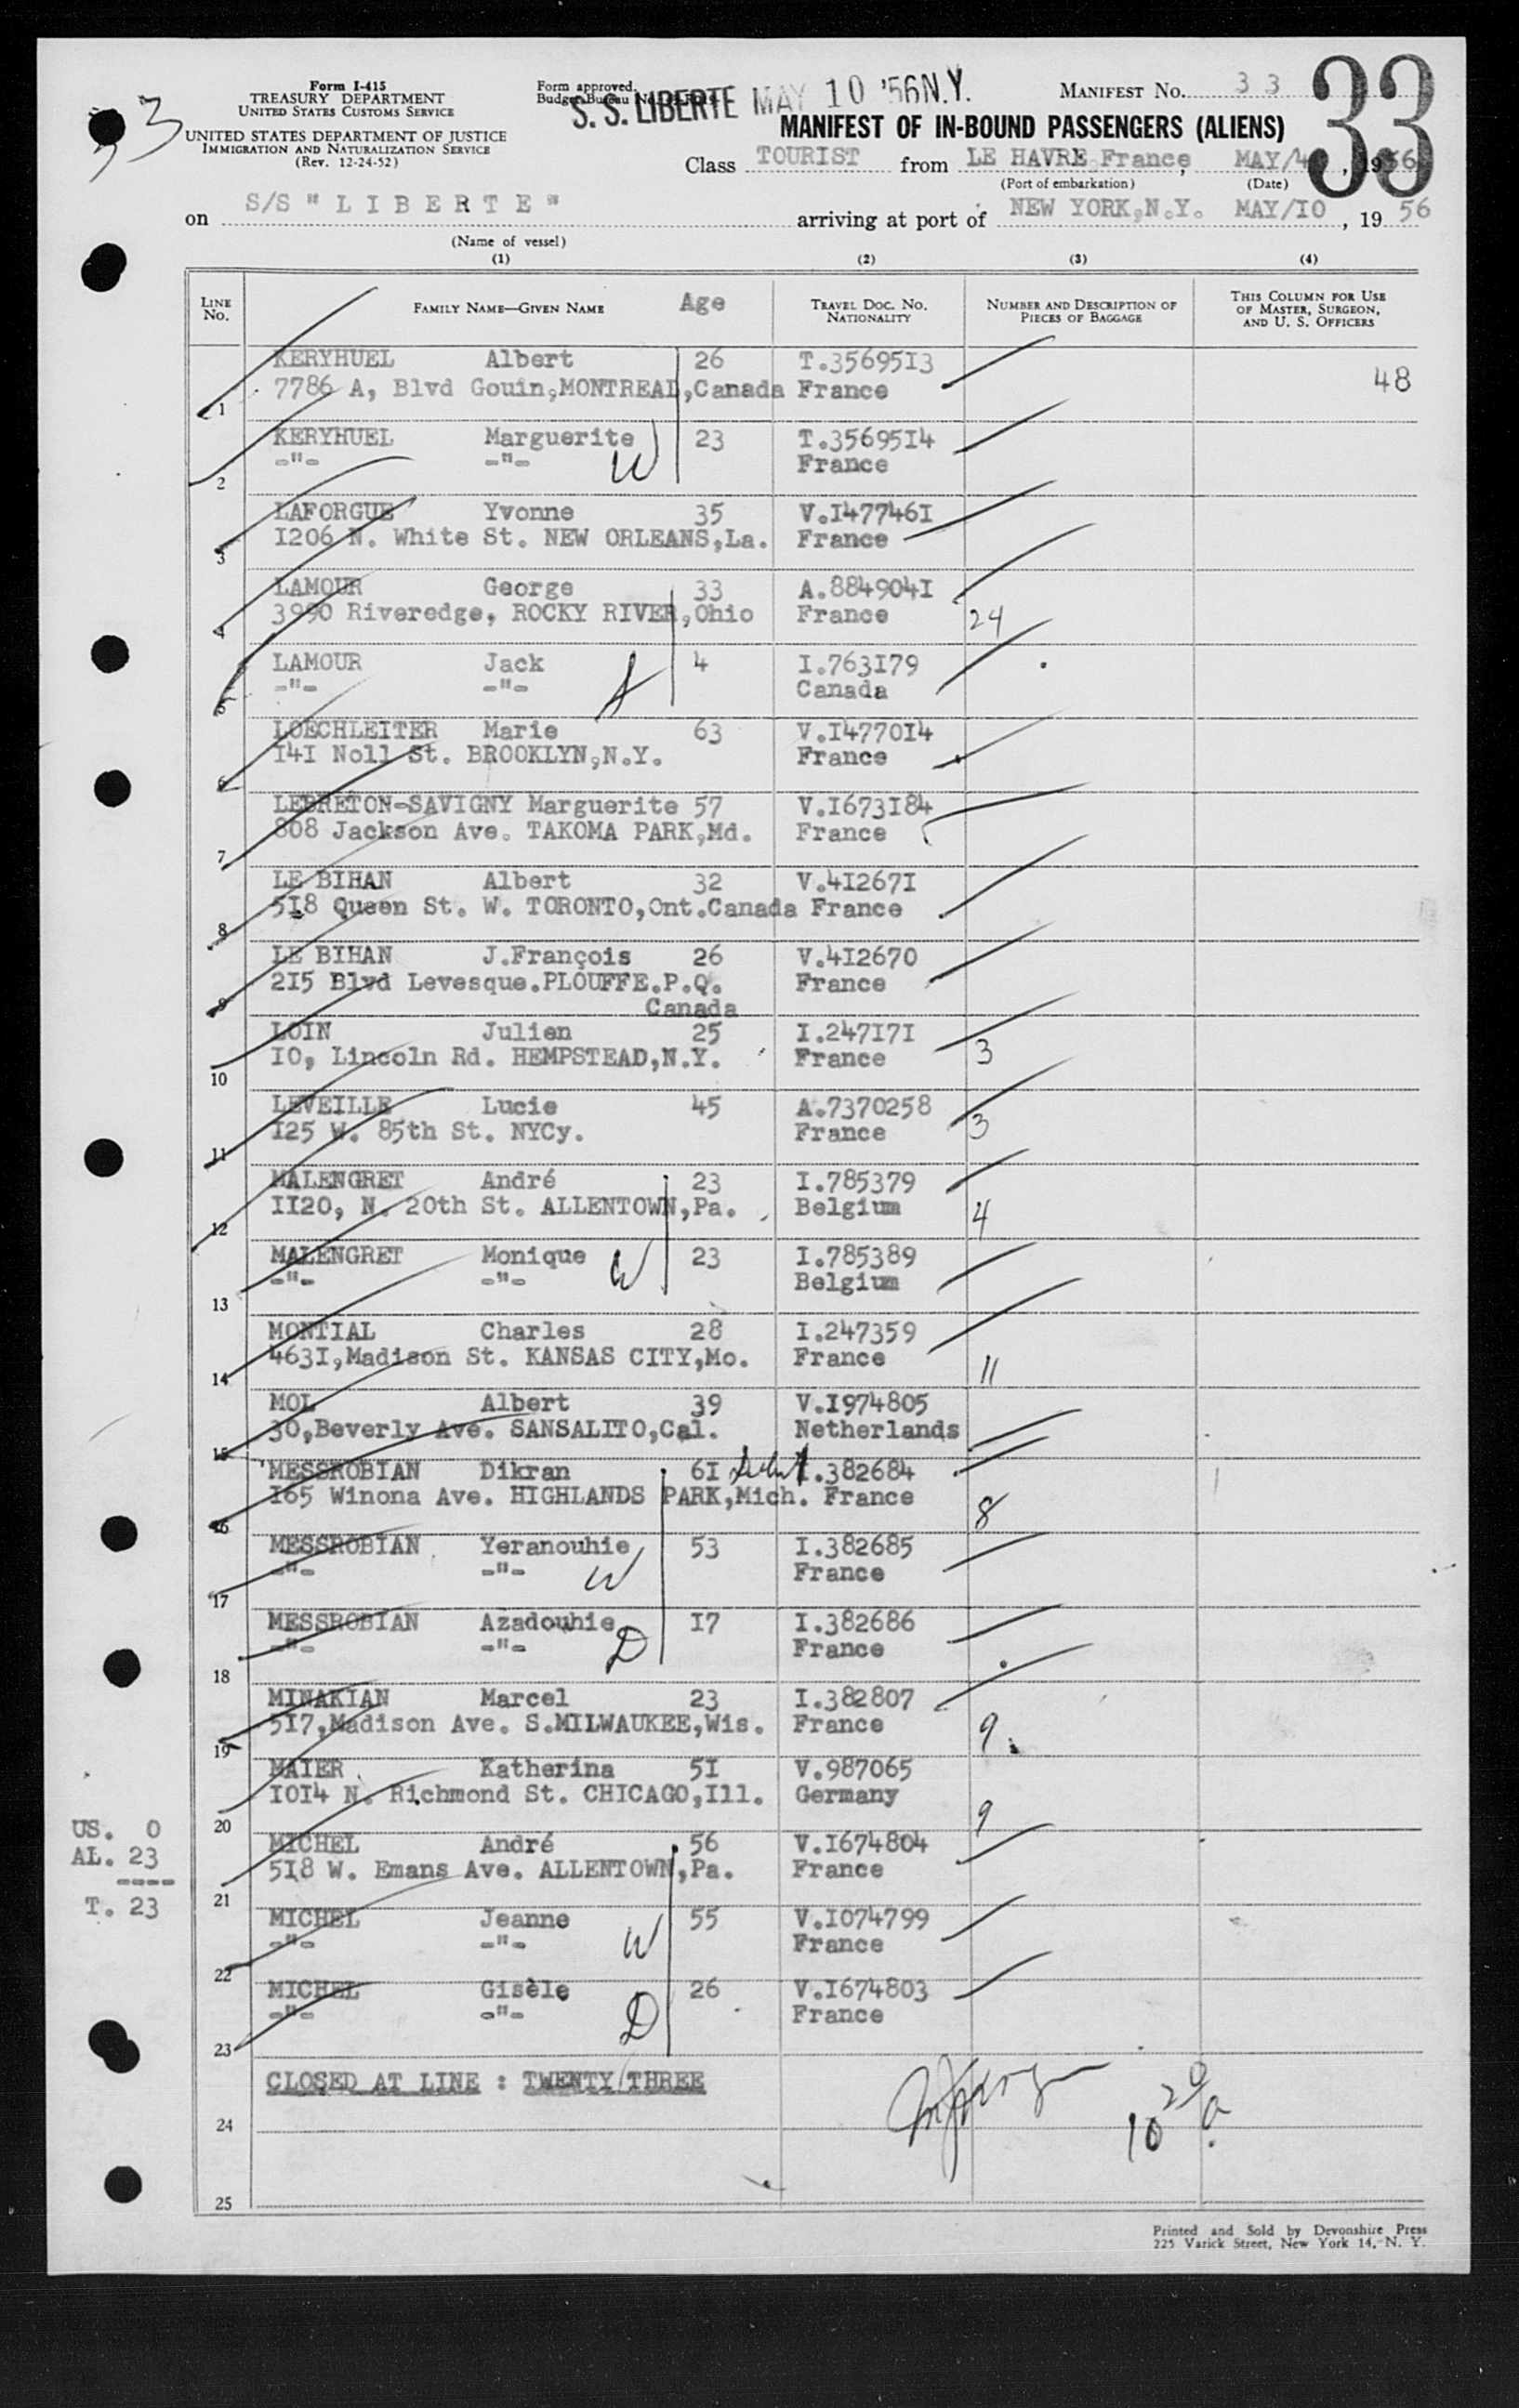 Form I-415
TREASURY DEPARTMENT
UNITED STATES CUSTOMS SERVICE
UNITED STATES DEPARTMENT OF JUSTICE
IMMIGRATION AND NATURALIZATION SERVICE
(Rev. 12-24-52)
Form approved.
Budget Bureau No.
S. S. LIBERTE MAY 10 '56 N.Y.
MANIFEST No. 33
33
MANIFEST OF IN-BOUND PASSENGERS (ALIENS)
Class TOURIST from LE HAVRE France, MAY/4, 1956
(Port of embarkation) (Date)
on S/S " L I B E R T E " arriving at port of NEW YORK,N.Y. MAY/IO, 19 56
(Name of vessel)
(1) (2) (3) (4)
LINE No. FAMILY NAME—GIVEN NAME Age TRAVEL DOC. NO. NATIONALITY NUMBER AND DESCRIPTION OF PIECES OF BAGGAGE THIS COLUMN FOR USE OF MASTER, SURGEON, AND U. S. OFFICERS
KERYHUEL Albert 26 T.35695I3
1 7786 A, Blvd Gouin,MONTREAL,Canada France 48
KERYHUEL Marguerite 23 T.35695I4
2 -"- -"- W France
LAFORGUE Yvonne 35 V.I47746I
3 I206 N. White St. NEW ORLEANS,La. France
LAMOUR George 33 A.884904I
4 3990 Riveredge, ROCKY RIVER,Ohio France 24
LAMOUR Jack 4 I.763I79
5 -"- -"- Canada
LOECHLEITER Marie 63 V.I4770I4
6 I4I Noll St. BROOKLYN,N.Y. France
LEBRETON-SAVIGNY Marguerite 57 V.I673I84
7 808 Jackson Ave. TAKOMA PARK,Md. France
LE BIHAN Albert 32 V.4I267I
8 5I8 Queen St. W. TORONTO,Ont.Canada France
LE BIHAN J.François 26 V.4I2670
9 2I5 Blvd Levesque.PLOUFFE.P.Q. France
Canada
LOIN Julien 25 I.247I7I
10 IO, Lincoln Rd. HEMPSTEAD,N.Y. France 3
LEVEILLE Lucie 45 A.7370258
11 I25 W. 85th St. NYCy. France 3
MALENGRET André 23 I.785379
12 II20, N. 20th St. ALLENTOWN,Pa. Belgium 4
MALENGRET Monique W 23 I.785389
13 -"- -"- Belgium
MONTIAL Charles 28 I.247359
14 463I,Madison St. KANSAS CITY,Mo. France 11
MOL Albert 39 V.I974805
15 30,Beverly Ave. SANSALITO,Cal. Netherlands
MESSROBIAN Dikran 6I I.382684
16 I65 Winona Ave. HIGHLANDS PARK,Mich. France 8
MESSROBIAN Yeranouhie 53 I.382685
17 -"- -"- W France
MESSROBIAN Azadouhie I7 I.382686
18 -"- -"- D France
MINAKIAN Marcel 23 I.382807
19 5I7,Madison Ave. S.MILWAUKEE,Wis. France 9
MAIER Katherina 5I V.987065
20 IOI4 N. Richmond St. CHICAGO,Ill. Germany 9
MICHEL André 56 V.I674804
21 5I8 W. Emans Ave. ALLENTOWN,Pa. France
MICHEL Jeanne 55 V.I074799
22 -"- -"- W France
MICHEL Gisèle 26 V.I674803
23 -"- -"- D France
US. 0
AL. 23
----
T. 23
CLOSED AT LINE : TWENTY THREE
24
25
Printed and Sold by Devonshire Press
225 Varick Street, New York 14, N. Y.